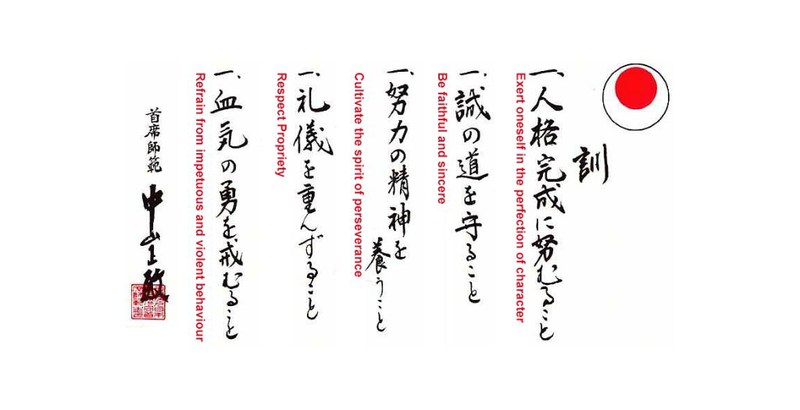 訓
一、人格完成に努むること
Exert oneself in the perfection of character
一、誠の道を守ること
Be faithful and sincere
一、努力の精神を養うこと
Cultivate the spirit of perseverance
一、礼儀を重んずること
Respect Propriety
一、血気の勇を戒むること
Refrain from impetuous and violent behaviour
首席師範 中山正敏